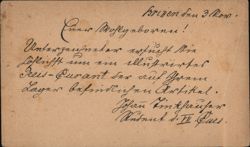 Brixen den 3 Nov.
Euer Wohlgeboren!
Unterzeichneter ersucht Sie
höflichst um ein illustrirtes
Preis-Courant der auf Ihrem
Lager befindlichen Artikel.
Johann
Student d. IV Class.